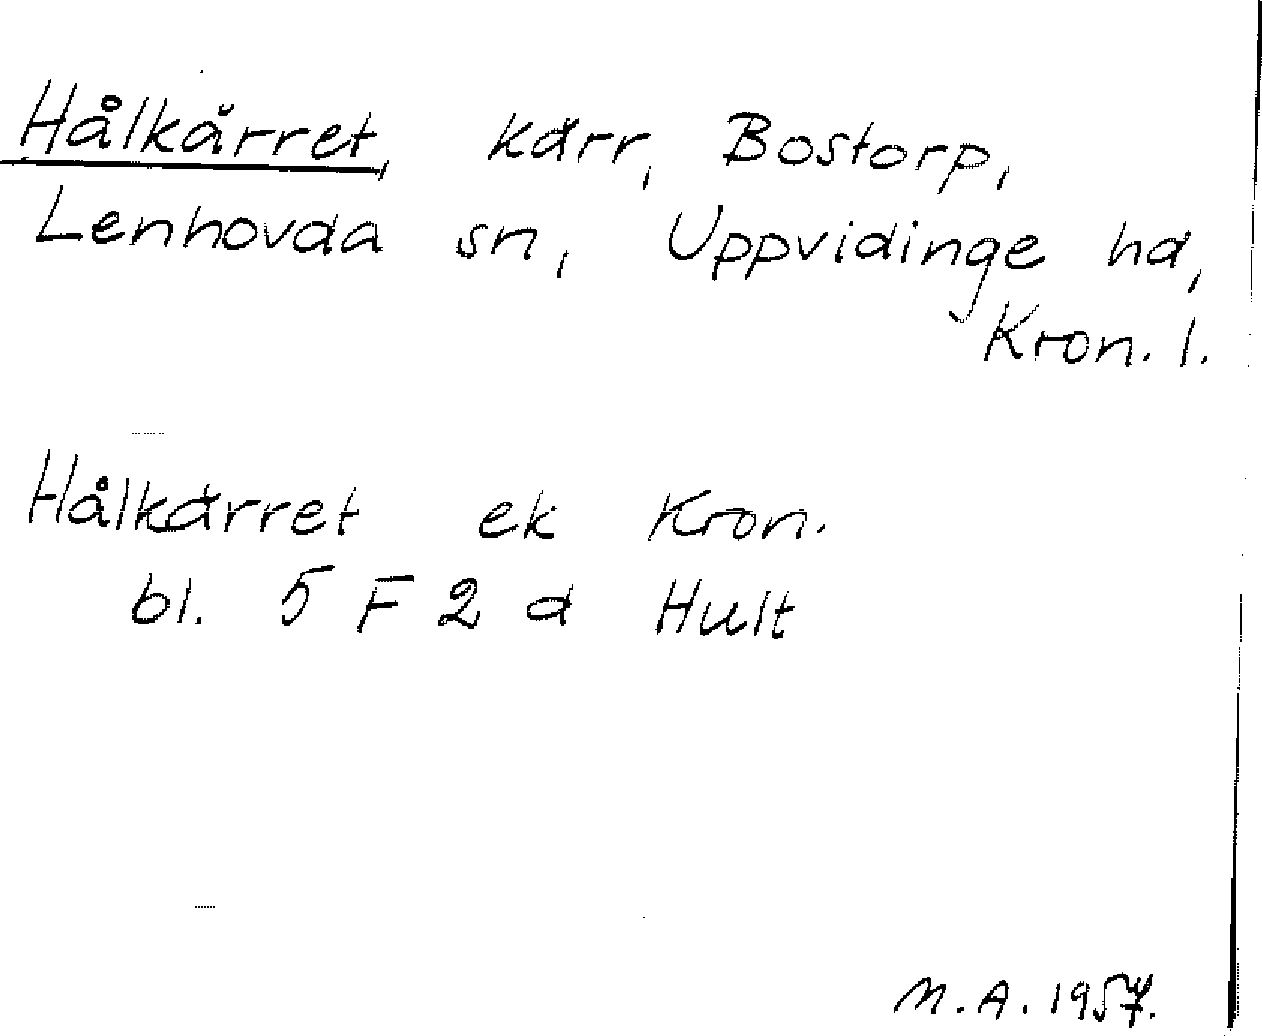 Hålkärret, kärr, Bostorp,
Lenhovda sn, Uppvidinge hd,
Kron. l.
Hålkärret ek Kron.
bl. 5 F 2 d Hult
M.A. 1957.